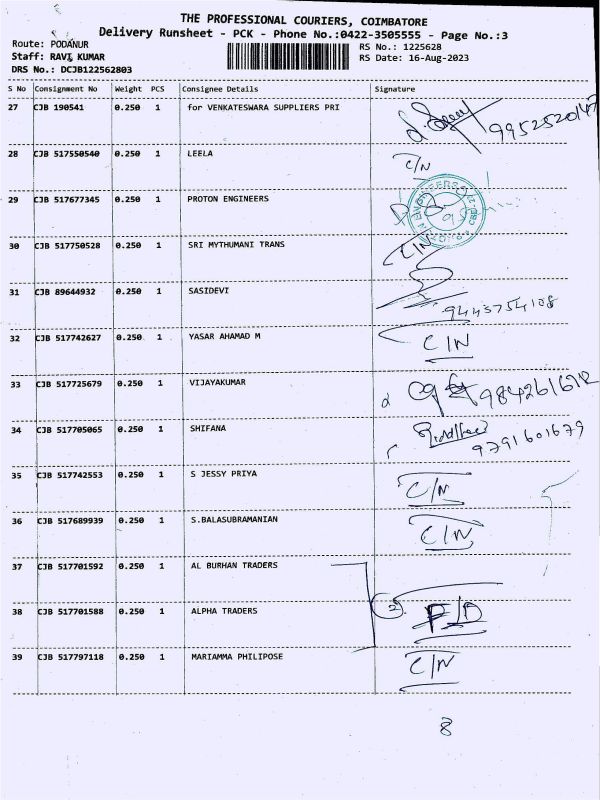 THE PROFESSIONAL COURIERS, COIMBATORE
Delivery Runsheet - PCK - Phone No.:0422-3505555 - Page No.:3
Route: PODANUR
RS No.: 1225628
Staff: RAVI KUMAR
RS Date: 16-Aug-2023
DRS No.: DCJB122562803
S No Consignment No Weight PCS Consignee Details Signature
27 CJB 190541 0.250 1 for VENKATESWARA SUPPLIERS PRI
28 CJB 517550540 0.250 1 LEELA C/N
29 CJB 517677345 0.250 1 PROTON ENGINEERS
30 CJB 517750528 0.250 1 SRI MYTHUMANI TRANS C/N
31 CJB 89644932 0.250 1 SASIDEVI
9443754108
32 CJB 517742627 0.250 1 YASAR AHAMAD M C/N
33 CJB 517725679 0.250 1 VIJAYAKUMAR
34 CJB 517705065 0.250 1 SHIFANA
9791601679
35 CJB 517742553 0.250 1 S JESSY PRIYA C/N
36 CJB 517689939 0.250 1 S.BALASUBRAMANIAN C/N
37 CJB 517701592 0.250 1 AL BURHAN TRADERS
38 CJB 517701588 0.250 1 ALPHA TRADERS 2 F/D
39 CJB 517797118 0.250 1 MARIAMMA PHILIPOSE C/N
8